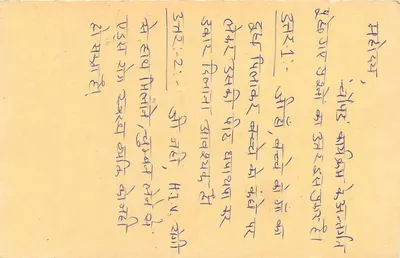 महोदय,
चौपड़ कार्यक्रम के अन्तर्गत
पूछे गए प्रश्नों का उत्तर इस प्रकार है।
उत्तर 1:- जी हाँ, बच्चे को माँ का
दूध पिलाकर बच्चे को कंधे पर
लेकर उसकी पीठ थपथपा कर
डकार दिलाना आवश्यक है।
उत्तर:-2:- जी नहीं, H.I.V. रोगी
से हाथ मिलाने, चुम्बन लेने से
एड्स रोग स्वस्थ व्यक्ति को नहीं
हो सकता है।